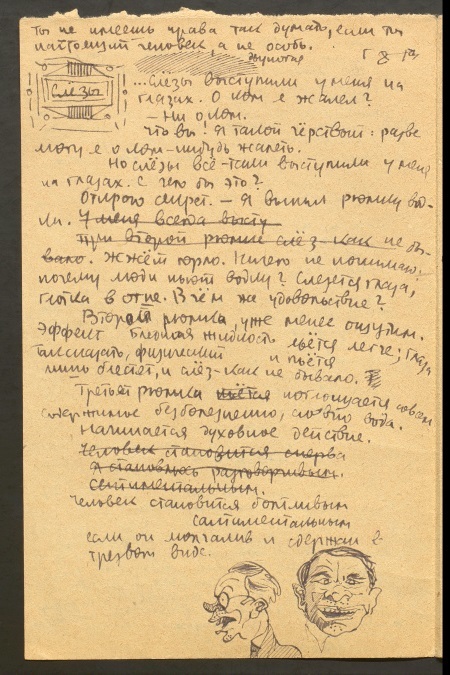 Ты не имеешь права так думать, если ты
настоящий человек, а не особь.
двуногая
Слёзы
...Слёзы выступили у меня на
глазах. О ком я жалел?
– Ни о ком.
Что вы! Я такой чёрствый: разве
могу я о ком-нибудь жалеть.
Но слёзы всё-таки выступили у меня
на глазах. С чего бы это?
Открою секрет. – Я выпил рюмку вод-
ки. У меня всегда высту
При второй рюмке слёз как не бы-
вало. Жжёт горло. Ничего не понимаю,
почему люди пьют водку? Слезятся глаза,
глотка в огне. В чём же удовольствие?
Второй рюмка, уже менее ощутим.
Эффект бледная жидкость льётся легче; глаза
так сказать, физический и пьётся
лишь блестят, и слёз – как не бывало.
Третья рюмка льётся поглощается совсем
содержимое безболезненно, словно вода.
Начинается духовное действие.
Человек становится сперва
Я становлюсь разговорчивым.
Сентиментальным.
Человек становится болтливым
сантиментальным
если он молчалив и сдержан в
трезвом виде.